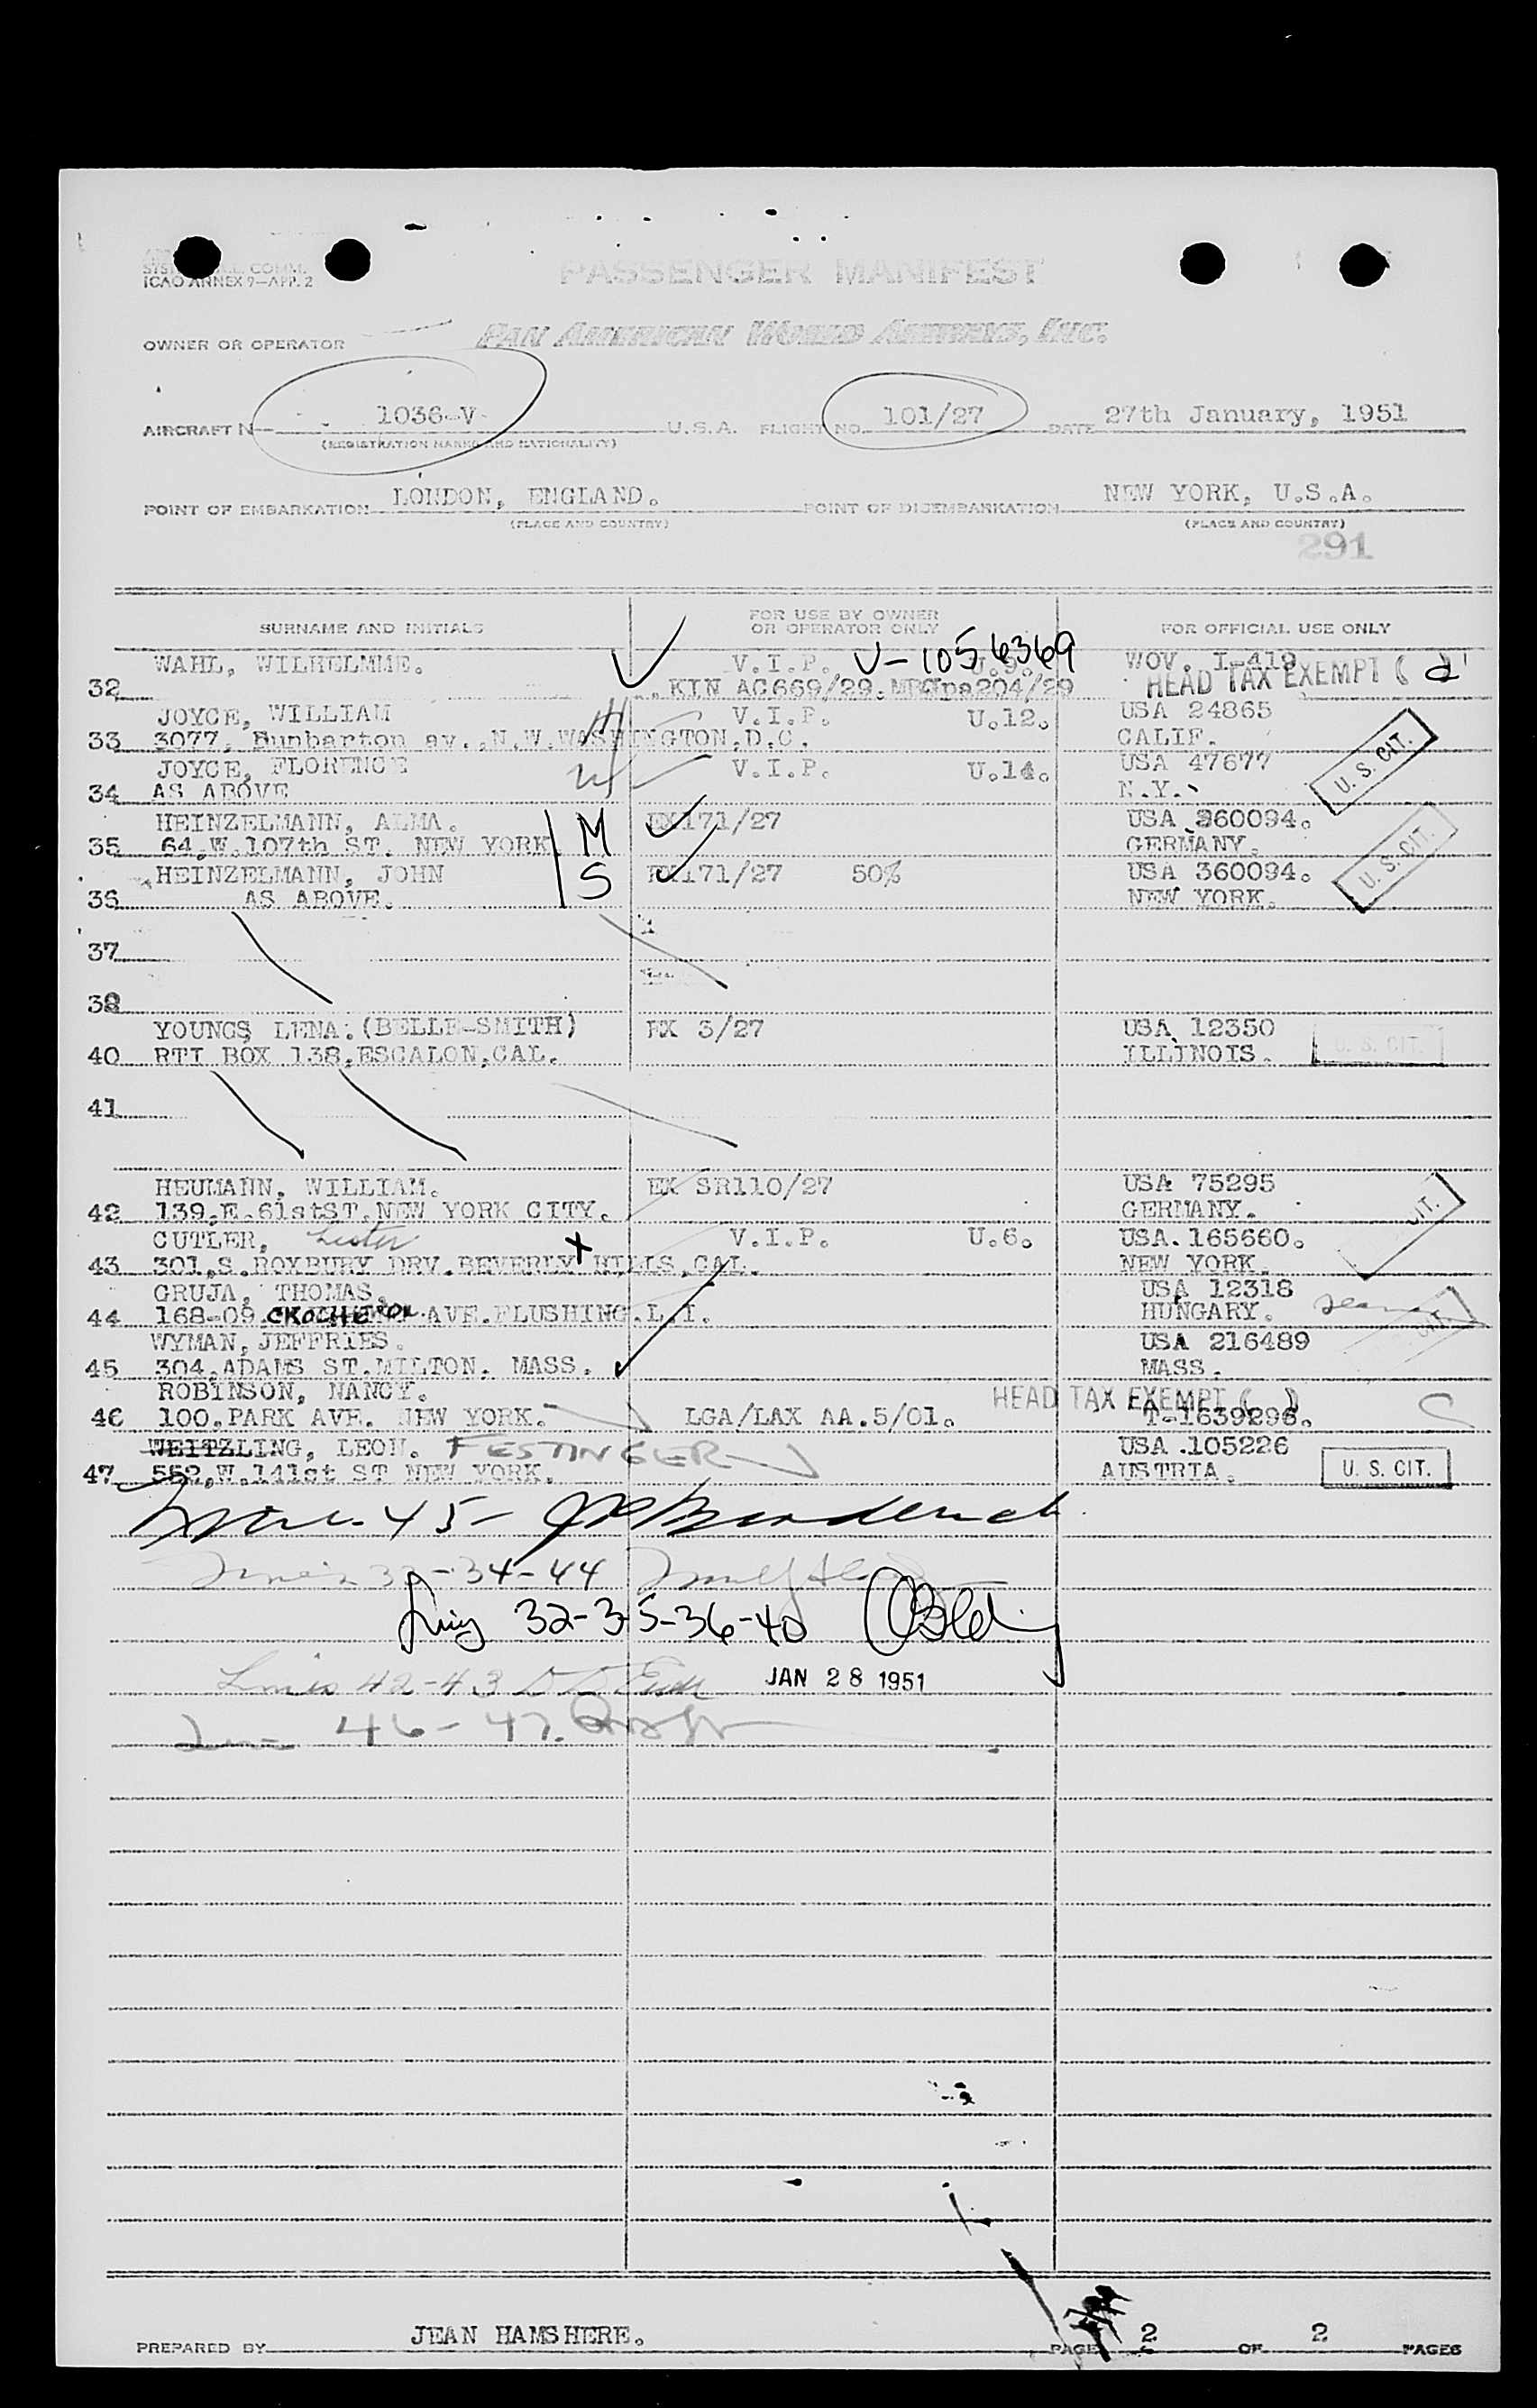 SYST COMM.
ICAO ANNEX 9-APP. 2
PASSENGER MANIFEST
OWNER OR OPERATOR PAN AMERICAN WORLD AIRWAYS, INC.
AIRCRAFT N 1036-V U.S.A. FLIGHT NO. 101/27 DATE 27th January, 1951
(REGISTRATION MARKS AND NATIONALITY)
POINT OF EMBARKATION LONDON, ENGLAND. POINT OF DISEMBARKATION NEW YORK, U.S.A.
(PLACE AND COUNTRY) (PLACE AND COUNTRY)
291
SURNAME AND INITIALS FOR USE BY OWNER OR OPERATOR ONLY FOR OFFICIAL USE ONLY
WAHL, WILHELMME. V.I.P. V-1056369 WOV. I-419
32 KIN AC669/29. 204/29 HEAD TAX EXEMPT ( 2
JOYCE, WILLIAM V.I.P. U.12. USA 24865
33 3077, Dunbarton av., N.W.WASHINGTON,D.C. CALIF. U. S. CIT.
JOYCE, FLORENCE V.I.P. U.14. USA 47677
34 AS ABOVE N.Y.
HEINZELMANN, ALMA. M EX171/27 USA 360094.
35 64,W.107th ST. NEW YORK. GERMANY. U. S. CIT.
HEINZELMANN, JOHN S EX171/27 50% USA 360094.
36 AS ABOVE. NEW YORK.
37
38
YOUNGS LENA.(BELLE-SMITH) EX 3/27 USA 12350
40 RTI BOX 138,ESCALON,CAL. ILLINOIS. U. S. CIT.
41
HEUMANN, WILLIAM. EX SR110/27 USA 75295
42 139,E.61stST.NEW YORK CITY. GERMANY. CIT.
CUTLER, Lester V.I.P. U.6. USA.165660.
43 301,S.ROXBURY DRV.BEVERLY HILLS,CAL. NEW YORK.
GRUJA, THOMAS. USA 12318
44 168-09 CROCHERON AVE.FLUSHING.L.I. HUNGARY. CIT.
WYMAN, JEFFRIES. USA 216489
45 304,ADAMS ST.MILTON. MASS. MASS.
ROBINSON, NANCY. HEAD TAX EXEMPT ( )
46 100,PARK AVE. NEW YORK. LGA/LAX AA.5/01. T-1639296.
WEITZLING, LEON. FESTINGER USA.105226
47 552,W.141st ST NEW YORK. AUSTRIA. U. S. CIT.
45-
34-44
32-35-36-40
Lines 42-43
JAN 28 1951
46-47.
PREPARED BY JEAN HAMSHERE. PAGE 2 OF 2 PAGES